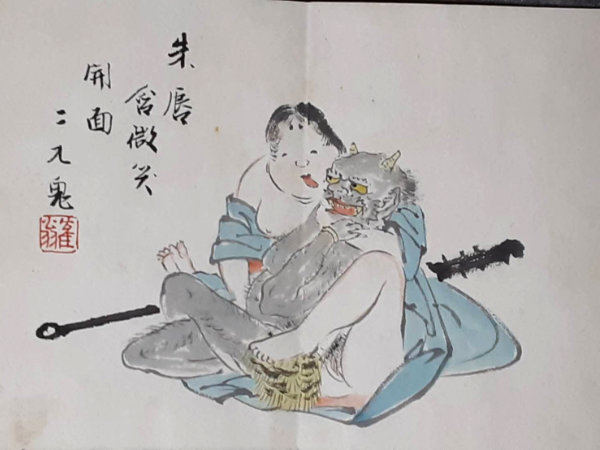 朱唇
含微笑
開面
二 鬼